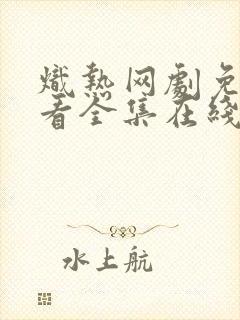 熾熱网劇免
看全集在綫
水上航